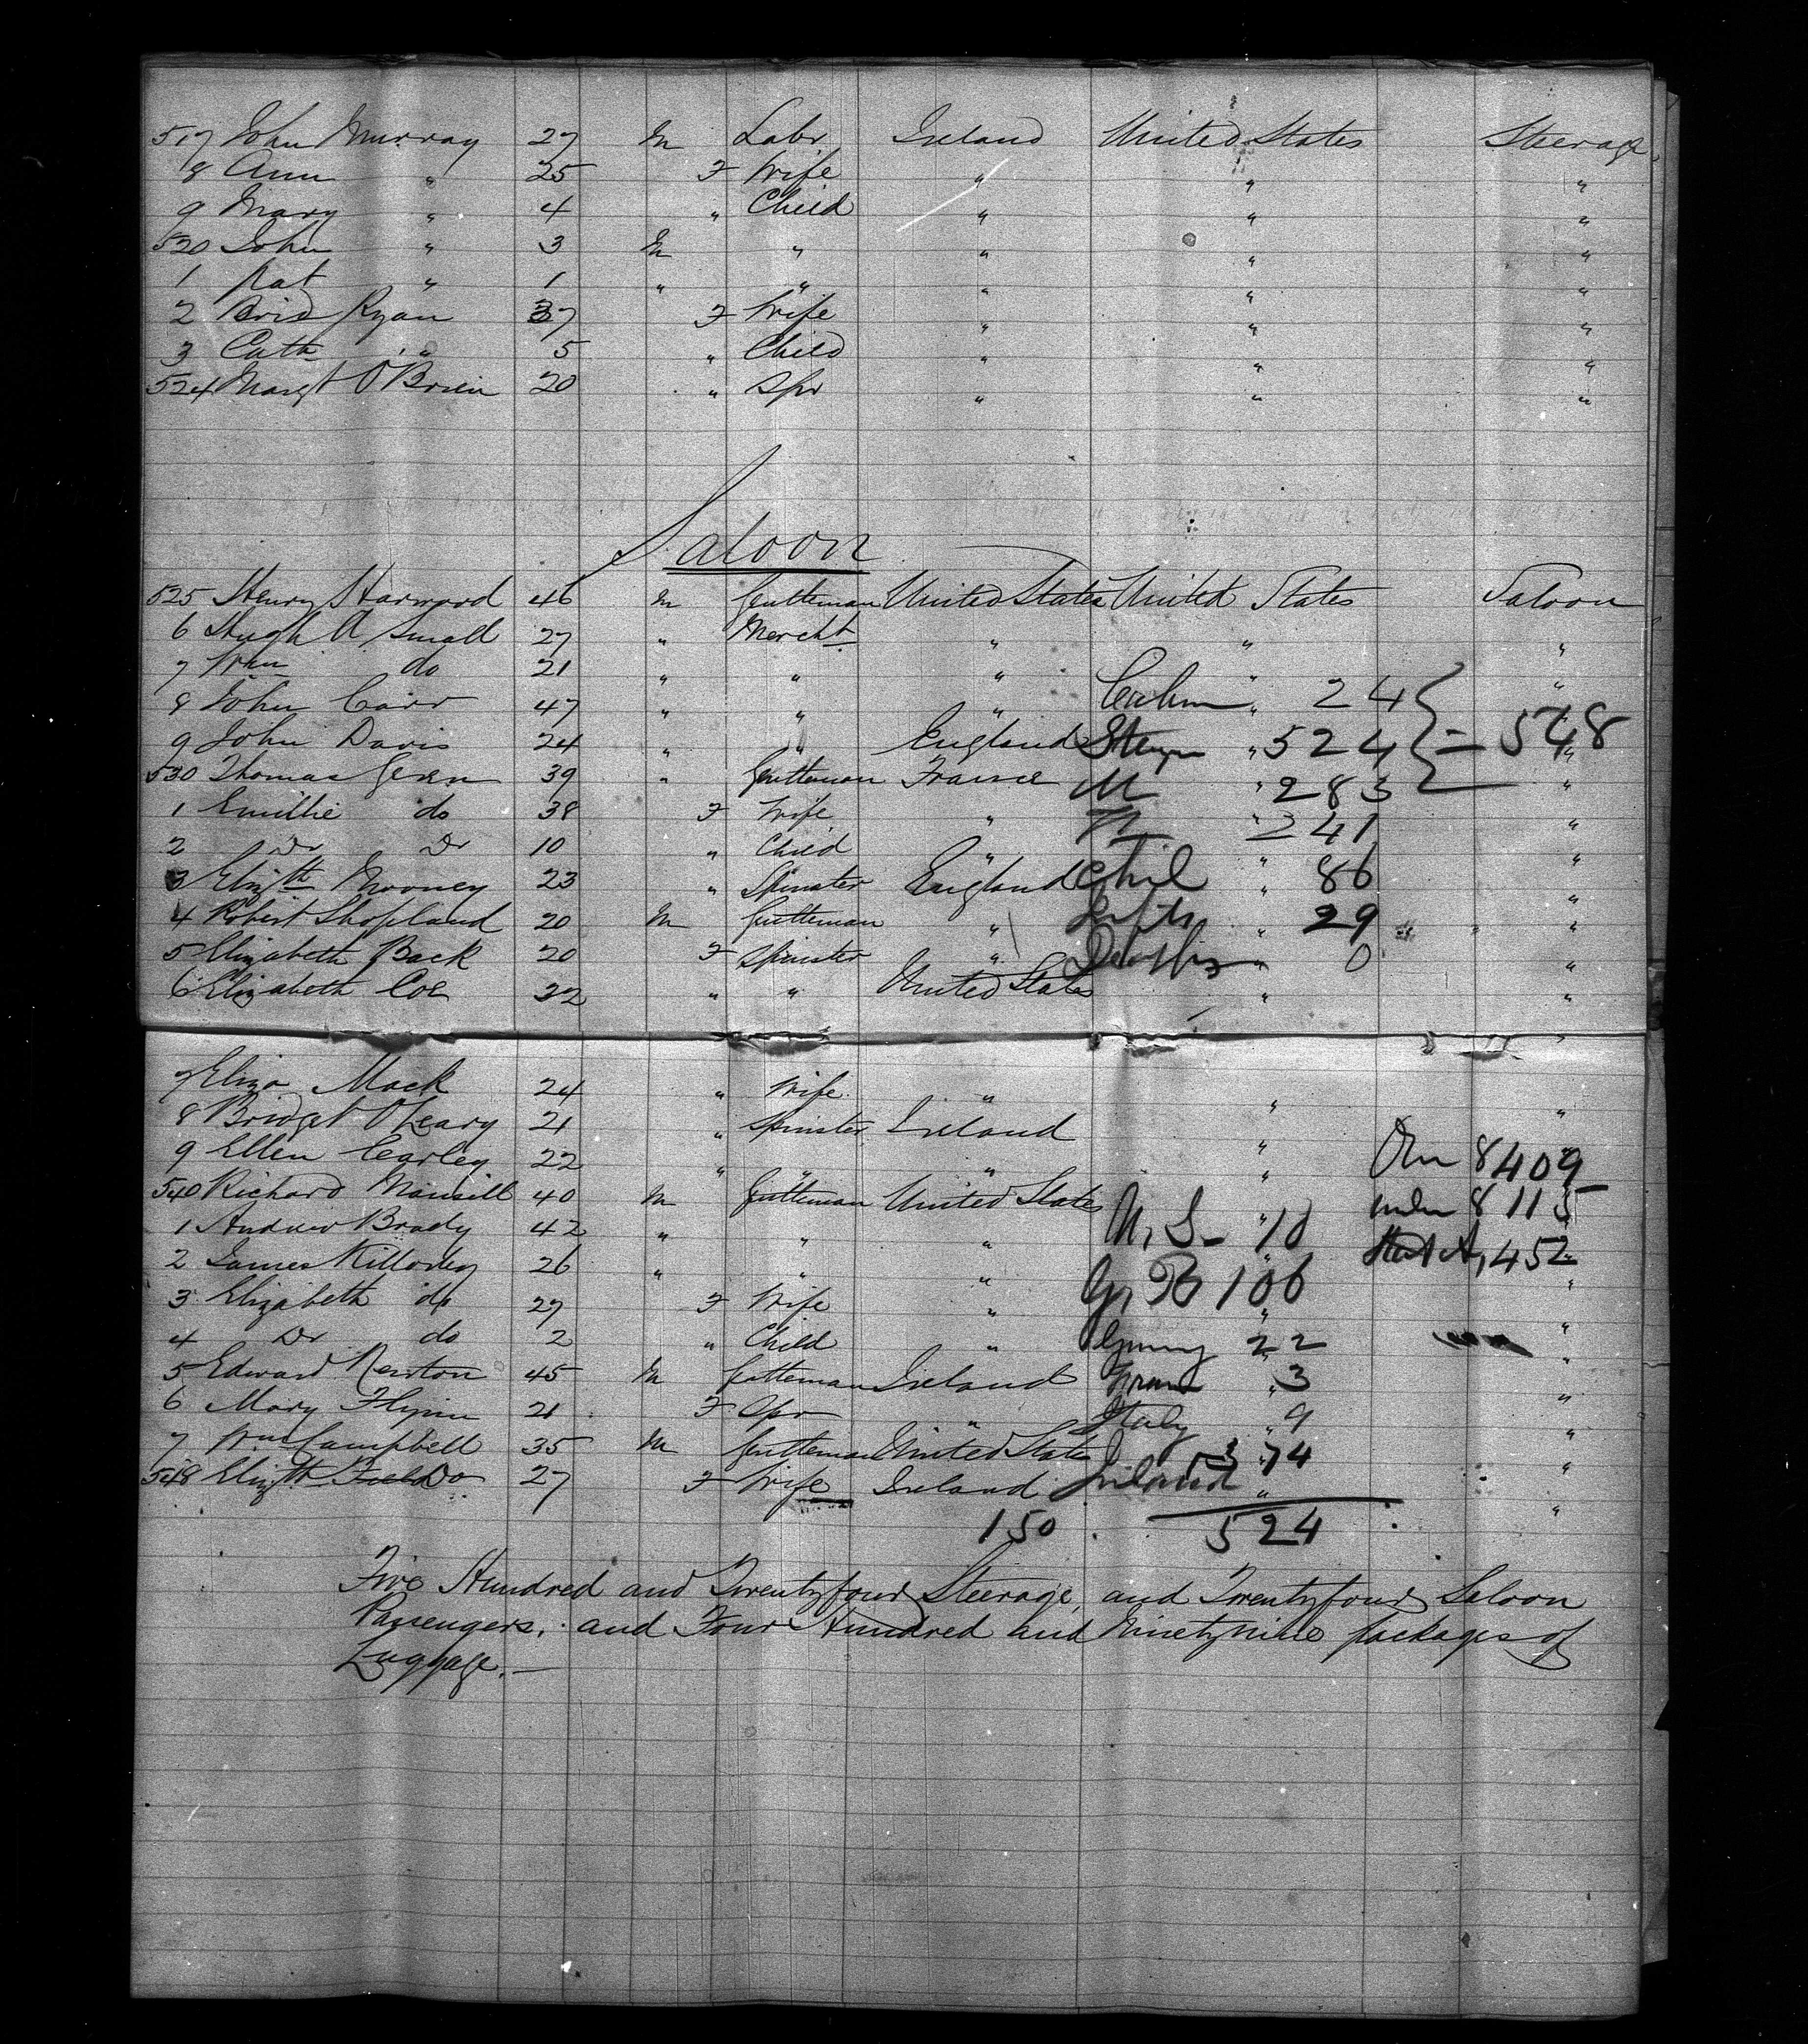 517 John Murray 27 M Labr Ireland United States Steerage
8 Ann " 25 F Wife " " "
9 Mary " 4 " Child " " "
520 John " 3 M " " " "
1 Pat " 1 " " " " "
2 Brid Ryan 37 F Wife " " "
3 Cath " 5 " Child " " "
524 Margt O'Brien 20 " Spr " " "
Saloon
525 Henry Harwood 46 M Gentleman United States United States Saloon
6 Hugh A Small 27 " Mercht " " "
7 Wm do 21 " " " " "
8 John Carr 47 " " " " 24 "
9 John Davis 24 " " England " 524 = 548 "
530 Thomas 39 " Gentleman France M " 283 "
1 Emillie do 38 F Wife " F " 241 "
2 Do Do 10 " Child " " "
3 Elizth Mooney 23 " Spinster England Chil " 86 "
4 Robert Shopland 20 M Gentleman " " 29 "
5 Elizabeth Back 20 F Spinster " " 0 "
6 Elizabeth Coe 22 " " United States " "
7 Eliza Mack 24 " Wife " " "
8 Bridget O'Leary 21 " Spinster Ireland "
9 Ellen Carley 22 " " " " Over 8 409
540 Richard Mansill 40 M Gentleman United States " under 8 115
1 Andrew Brady 42 " " " U, S- 10 452
2 James Killorley 26 " " " Gr B 106 "
3 Elizabeth do 27 F Wife " " "
4 Do do 2 " Child " Germy 22 "
5 Edward Newton 45 M Gentleman Ireland " 3 "
6 Mary Flynn 21 F Spr " Italy " 9 "
7 Wm Campbell 35 M Gentleman United States 374 "
548 Elizth Do 27 F Wife Ireland Ireland " "
150 . 524
Five Hundred and Twentyfour Steerage, and Twentyfour Saloon
Passengers, and Four Hundred and Ninetynine packages of
Luggage.-